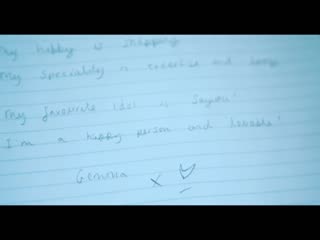 My hobby is shopping
My speciality is exercise and
My favourite idol is Sayumi!
I'm a happy person and lovable!
Gemma x